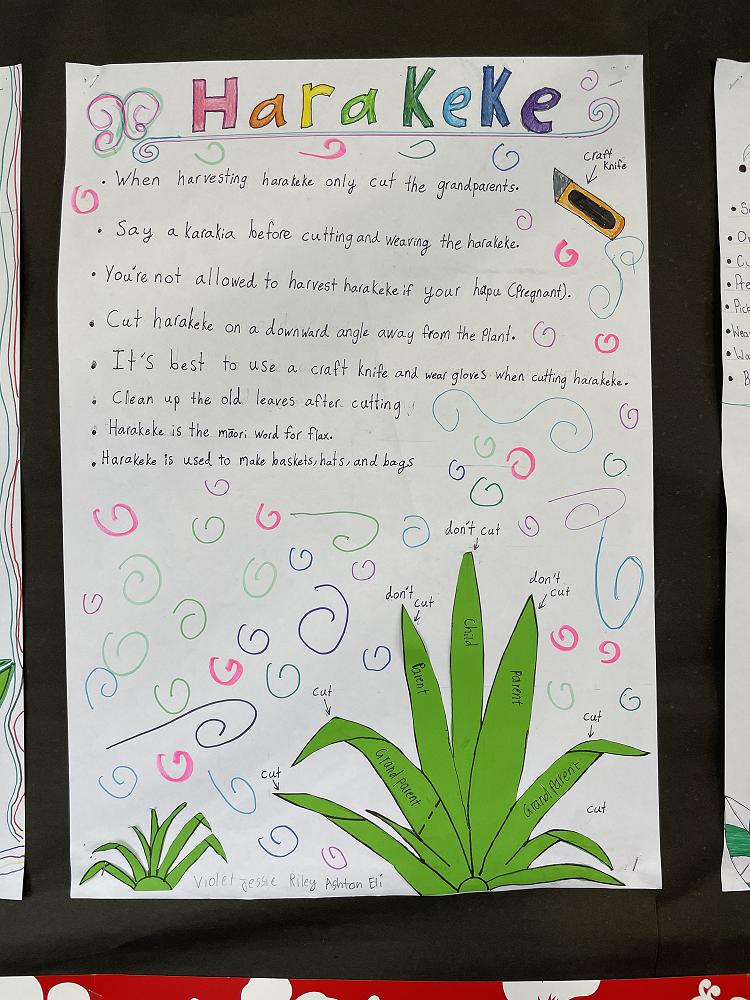 HaraKeKe
craft
knife
• When harvesting harakeke only cut the grandparents.
• Say a karakia before cutting and weaving the harakeke.
• You're not allowed to harvest harakeke if your hapu (Pregnant).
• Cut harakeke on a downward angle away from the Plant.
• It's best to use a craft knife and wear gloves when cutting harakeke.
• Clean up the old leaves after cutting
• Harakeke is the māori word for flax.
• Harakeke is used to make baskets, hats, and bags
don't cut
don't
cut
don't
cut
Child
Parent
Parent
cut
cut
Grand parent
Grand Parent
cut
cut
Violet Jessie Riley Ashton Eli